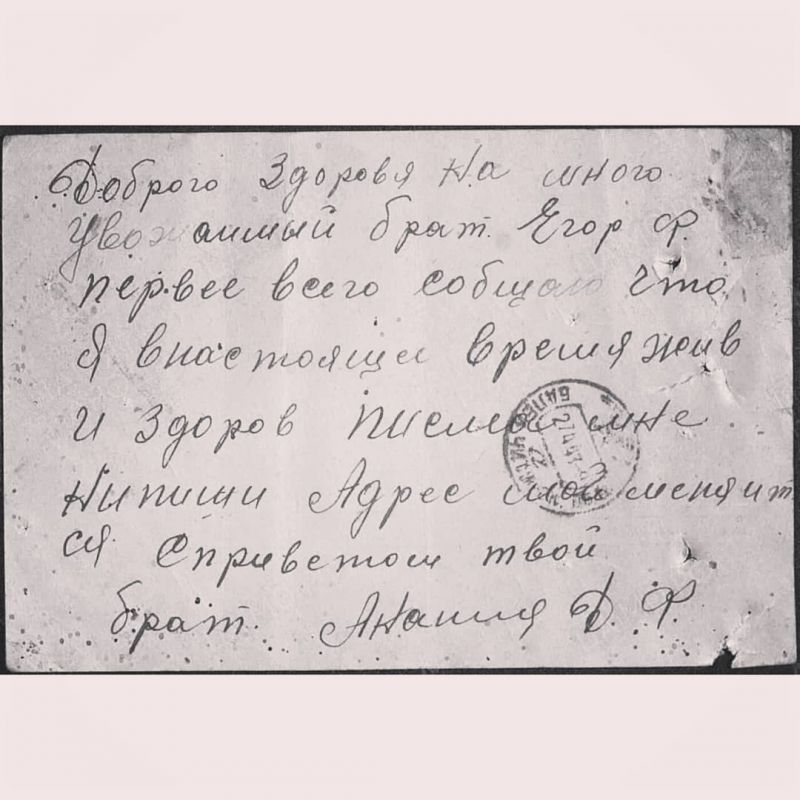 Доброго Здоровя На много
Уважаимый брат. Егор Ф.
первее всего собщаю что
я внастояще время жив
и здоров писма мне
Нипиши Адрес мой меняит
ся Сприветом твой
брат. Д. Ф.
27 4 43